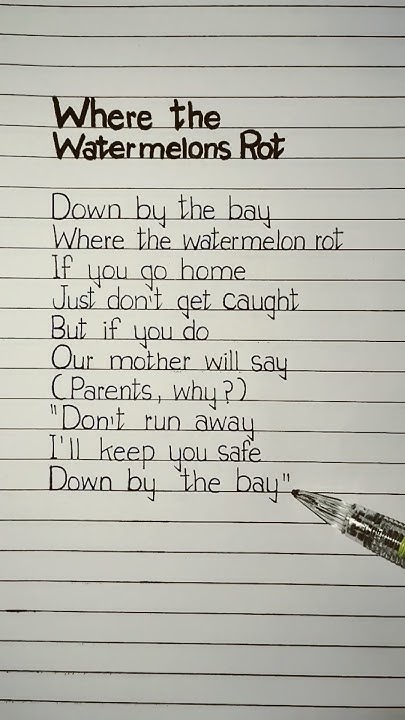 Where the
Watermelons Rot
Down by the bay
Where the watermelon rot
If you go home
Just don't get caught
But if you do
Our mother will say
(Parents, why?)
"Don't run away
I'll keep you safe
Down by the bay"